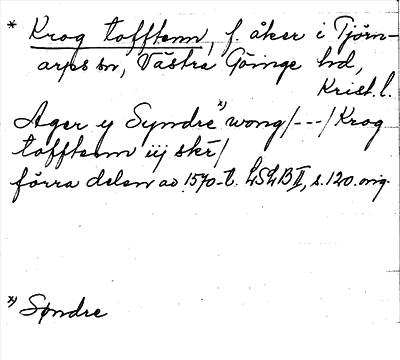 * Krog tofftenn, f. åker i Tjörn-
arps sn, Västra Göinge hd,
Krist. l.
Ager y Syndre *) wong/---/Krog
tofftenn iij skr̄/
förra delen av 1570-t. LSLB II, s. 120. orig.
*) Søndre